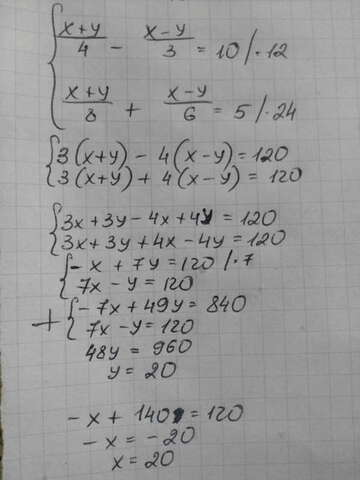 (x+y)/4 - (x-y)/3 = 10 /·12
(x+y)/8 + (x-y)/6 = 5 /·24
3(x+y) - 4(x-y) = 120
3(x+y) + 4(x-y) = 120
3x+3y-4x+4y = 120
3x+3y+4x-4y = 120
-x + 7y = 120 /·7
7x - y = 120
+ -7x + 49y = 840
7x - y = 120
48y = 960
y = 20
-x + 140 = 120
-x = -20
x = 20